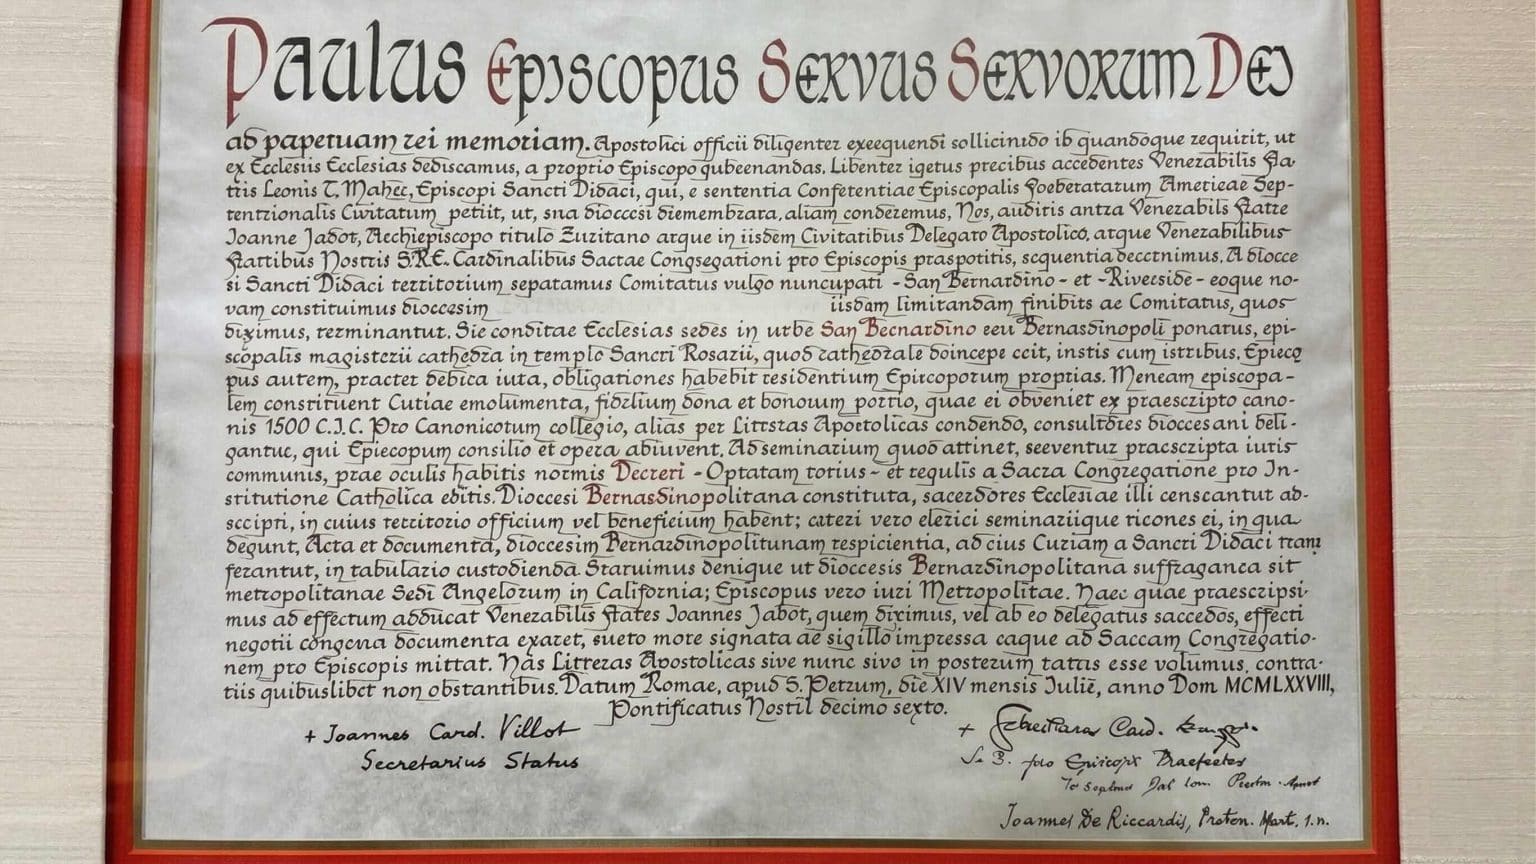 Paulus Episcopus Servus Servorum Dei
ad papetuam rei memoriam. Apostolici officii diligenter exeequendi sollicinido ib quandoque requirit, ut
ex Ecclesiis Ecclesias dediscamus, a proprio Episcopo qubeenandas. Libenter igetus precibus accedentes Venerabilis Fra-
tris Leonis T. Mahec, Episcopi Sancti Didaci, qui, e sententia Confetentiae Episcopalis Foebetatarum Americae Sep-
tentrionalis Civitatum petiit, ut, sna dioccesi diemembrara, aliam conderemus, Nos, auditis antra Venerabils Fratre
Joanne Jadot, Aechiepiscopo titulo Zuritano atque in iisdem Civitatibus Delegato Apostolico, atque Venerabilibus
Frattibus Nostris S.R.E. Cardinalibus Sactae Congsegationi pro Episcopis praspotitis, scquentia decctnimus. A diocce
si Sancti Didaci territorium sepatamus Comitatus vulgo nuncupati - San Bernardino - et - Riverside - eoque no-
vam constituimus dioccesim iisdam limitandam finibits ae Comitatus, quos
diximus, terminantut. Sie conditae Ecclesias sedes in utbe San Becnardino eeu Bernasdinopoli ponatus, epi-
scopalis magisterii cathedra in templo Sancti Rosarii, quod cathedrale doincepe ccit, instis cum istribus. Epieco
pus autem, practer debica iuta, obligationes habebit residentium Epitcoporum proprias. Meneam episcopa-
lem constituent Cutiae emolumenta, fidelium dona et bonoium portio, quae ei obveniet ex praescripto cano-
nis 1500 C.J.C. Pro Canonicotum collegio, alias per Litteras Apostolicas condendo, consultores dioccesani deli-
gantuc, qui Epiecopum consilio et opera abiuvent. Ad seminarium quod attinet, seeventur praescripta iutis
communis, prae oculis habitis normis Decreti - Optatam torius - et regulis a Sacra Congregatione pro In-
stitutione Catholica editis. Dioccesi Bernasdinopolitana constituta, sacerdores Ecclesiae illi censcantut ad-
sccipti, in cuius territorio officium vel beneficium habent; cateri vero elerici seminariique ticones ei, in qua
degunt, Acta et documenta, dioccesim Bernardinopolitunam respicientia, ad cius Curiam a Sancti Didaci trans
ferantut, in tabulario custodienda. Statuimus denique ut dioccesis Bernardinopolitana suffraganea sit
metropolitanae Sedi Angelorum in California; Episcopus vero iuri Metropolitae. Haec quae praescripsi-
mus ad effectum adducat Venerabilis Frates Joannes Jadot, quem diximus, vel ab eo delegatus saccedos, effecti
negotii congcua documenta exaret, sueto more signata ae sigillo impressa eaque ad Saccam Congregatio-
nem pro Episcopis mittat. Has Litteras Apostolicas sive nunc sivo in posterum tattis esse volumus, contra-
tiis quibuslibet non obstantibus. Datum Romae, apud S. Petrum, die XIV mensis Iulië, anno Dom MCMLXXVIII,
Pontificatus Nostil decimo sexto.
+ Joannes Card. Villot
Secretarius Status
+ Card.
pro Episcopis Praefectus
Joannes De Riccardis, Proton. Mart. s.n.